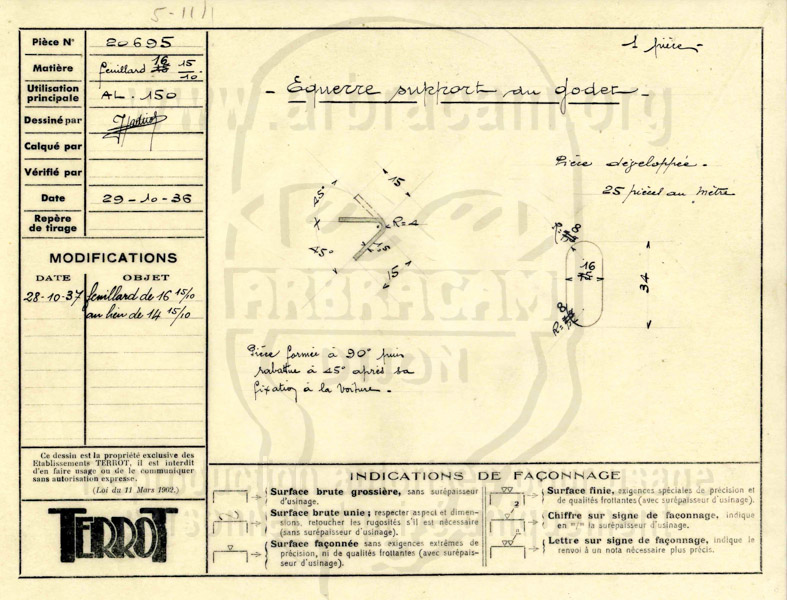 5-11/1
Pièce N° 20695
Matière feuillard 16 15/10
Utilisation principale AL. 150
Dessiné par
Calqué par
Vérifié par
Date 29-10-36
Repère de tirage
MODIFICATIONS
DATE OBJET
28-10-37 feuillard de 16 15/10
au lieu de 14 15/10
Ce dessin est la propriété exclusive des
Etablissements TERROT, il est interdit
d'en faire usage ou de le communiquer
sans autorisation expresse.
(Loi du 11 Mars 1902.)
TERROT
1 pièce
- Equerre support du godet -
www.arbracam.org
Pièce développée.
25 pièces au mètre
45°
15
R=4
45°
1,5
15
R= 8
16
34
R= 8
ARBRACAM
DIJON
Pièce formée à 90° puis
rabattue à 45° après sa
fixation à la voiture.
INDICATIONS DE FAÇONNAGE
Surface brute grossière, sans surépaisseur
d'usinage.
Surface brute unie; respecter aspect et dimen-
sions, retoucher les rugosités s'il est nécessaire
(sans surépaisseur d'usinage).
Surface façonnée sans exigences extrêmes de
précision, ni de qualités frottantes (avec surépais-
seur d'usinage).
Surface finie, exigences spéciales de précision et
de qualités frottantes (avec surépaisseur d'usinage).
Chiffre sur signe de façonnage, indique
en "/" la surépaisseur d'usinage.
Lettre sur signe de façonnage, indique le
renvoi à un nota nécessaire plus précis.